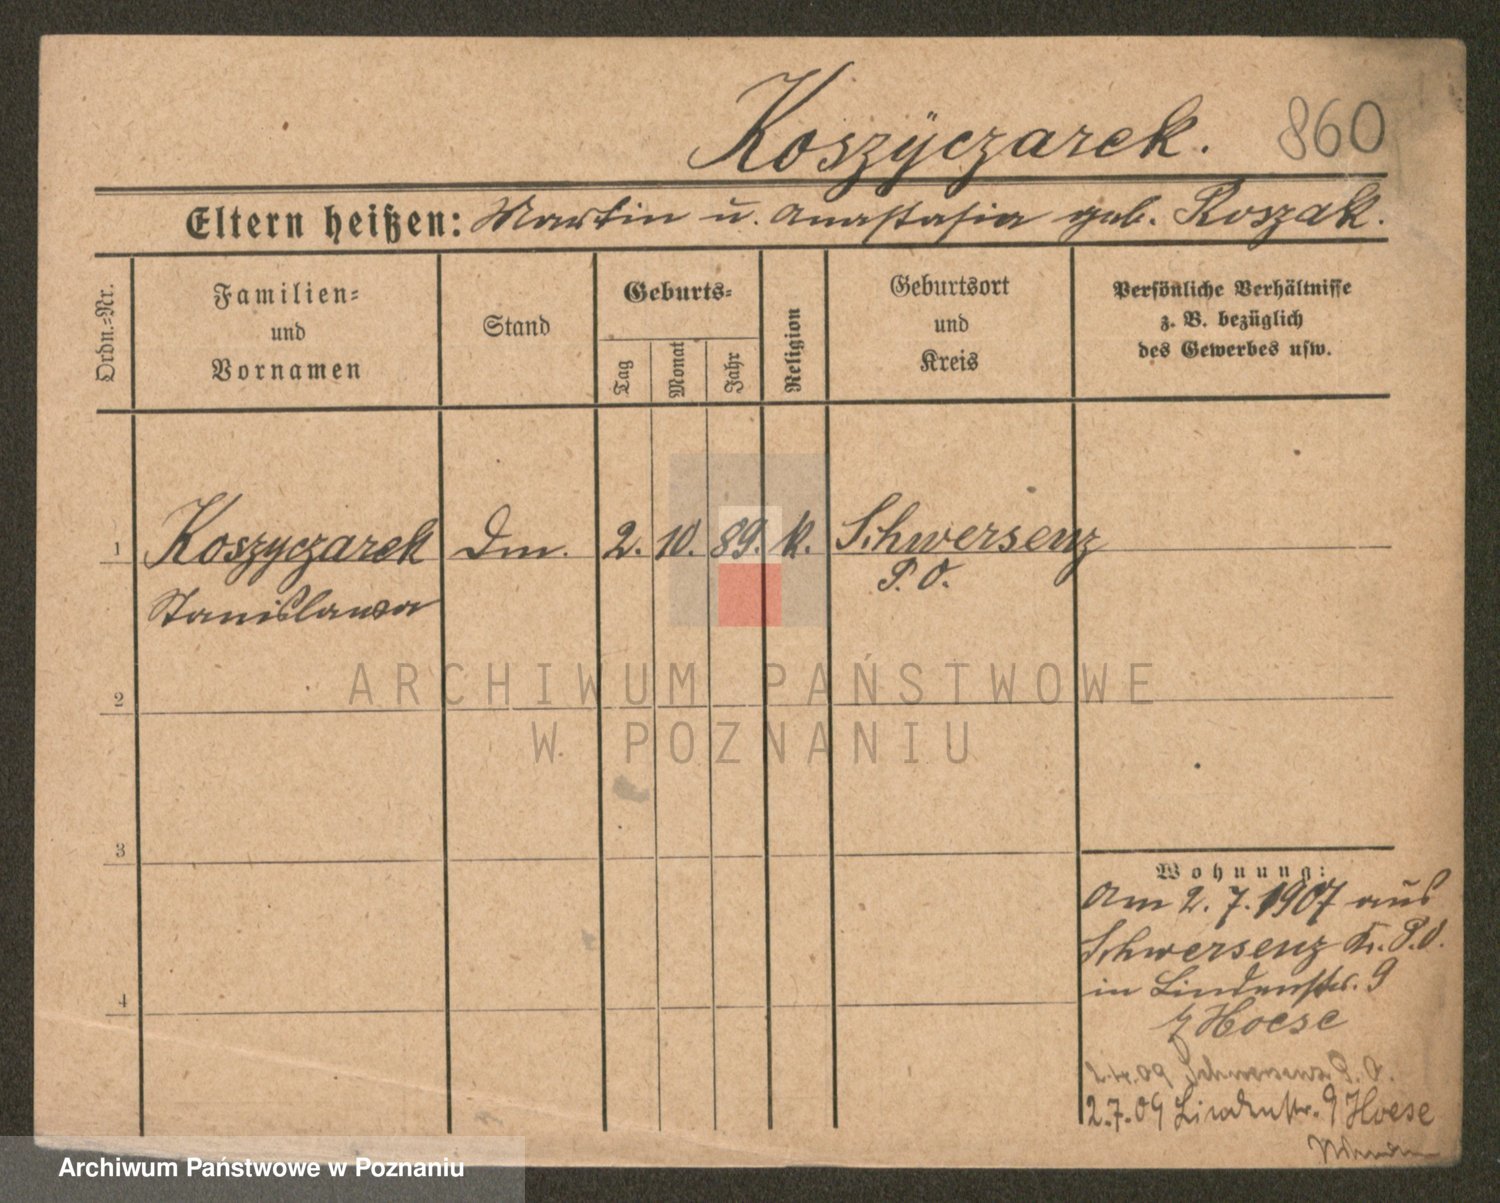 Koszÿczarek. 860
Eltern heißen: Martin u. Anastasia geb. Roszak.
Ordn.-Nr.
Familien-
und
Vornamen
Stand
Geburts-
Tag
Monat
Jahr
Religion
Geburtsort
und
Kreis
Persönliche Verhältnisse
z. B. bezüglich
des Gewerbes usw.
1 Koszyczarek Dm. 2. 10. 89. k. Schwersenz
Stanislawa P. O.
2
3
4
Wohnung:
Am 2. 7. 1907 aus
Schwersenz Kr. P.O.
in Lindenstr. 9
z Hoese
2.4.09 Schwersenz P. O.
2.7.09 Lindenstr. 9 Hoese
ARCHIWUM PAŃSTWOWE
W POZNANIU
Archiwum Państwowe w Poznaniu